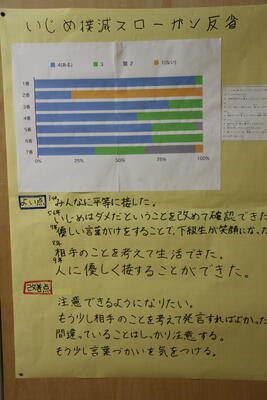 いじめ撲滅スローガン反省
4(ある) 3 2 1(ない)
1番
2番
3番
4番
5番
6番
7番
0% 25% 50% 75% 100%
よい点
みんなに平等に接した。
いじめはダメだということを改めて確認できた
優しい言葉がけをすることで、下級生が笑顔になった
相手のことを考えて生活できた。
人に優しく接することができた。
改善点
注意できるようになりたい。
もう少し相手のことを考えて発言すればよかった
間違っていることはしっかり注意する。
もう少し言葉づかいを気をつける。